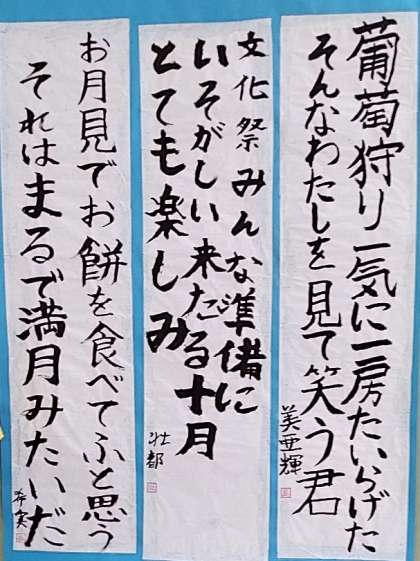 葡萄狩り一気に一房たいらげた
そんなわたしを見て笑う君
美亜輝
文化祭みんな準備に
いそがしい来たる十月
とても楽しみ
壮都
お月見でお餅を食べてふと思う
それはまるで満月みたいだ
希実